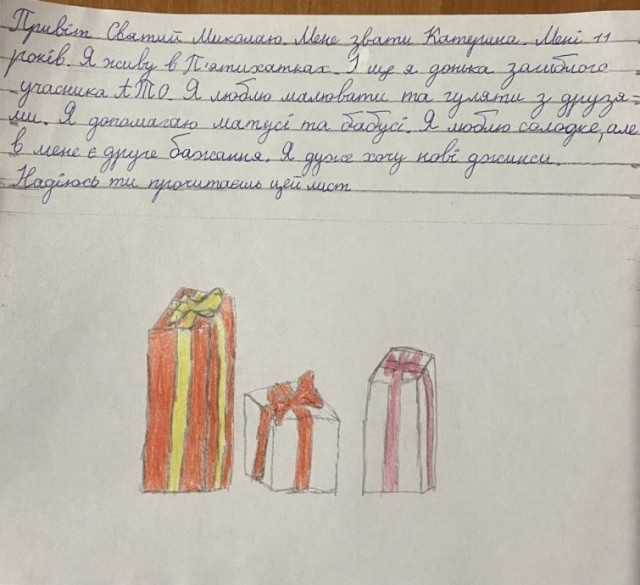 Привіт Святий Миколаю. Мене звати Катерина. Мені 11
років. Я живу в П'ятихатках. І ще я донька загиблого
учасника АТО. Я люблю малювати та гуляти з друзя=
ми. Я допомагаю матусі та бабусі. Я люблю солодке, але
в мене є друге бажання. Я дуже хочу нові джинси.
Надіюсь ти прочитаєш цей лист